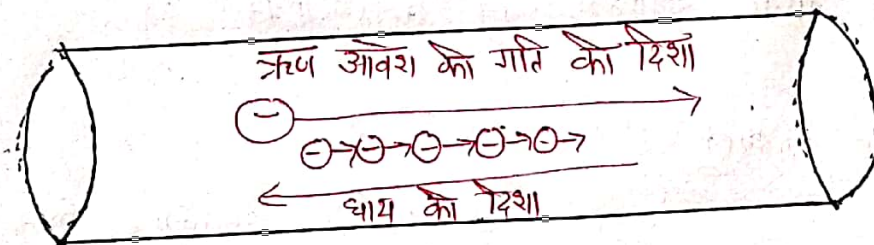 ऋण आवेश की गति की दिशा
धारा की दिशा